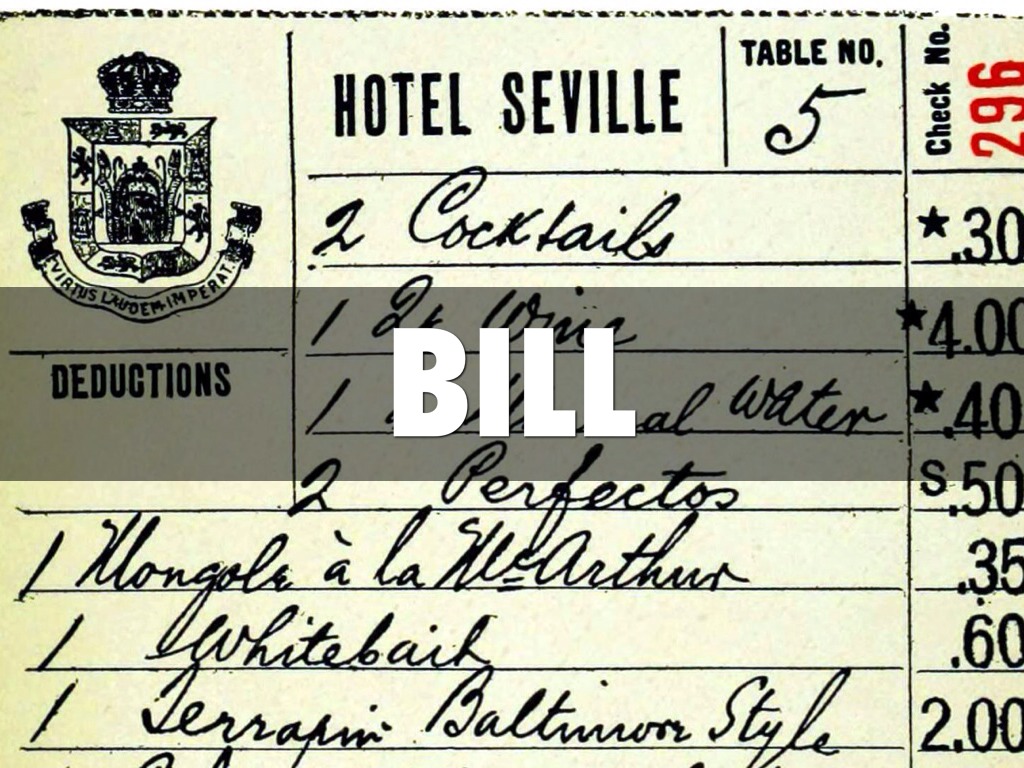 HOTEL SEVILLE
TABLE NO.
5
Check No.
296
VIRTUS LAUDEM IMPERAT.
2 Cocktails ★.30
1 Qt Wine ★4.00
BILL
DEDUCTIONS
1 al Water ★.40
2 Perfectos S.50
1 Mongole à la McArthur .35
1 Whitebait .60
1 Terrapin Baltimore Style 2.00